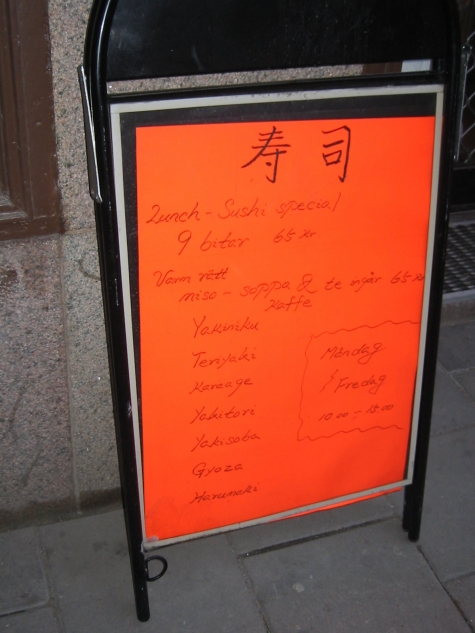 寿司
Lunch - Sushi special
9 bitar 65 kr
Varm rätt
miso - soppa & te ingår 65 kr
kaffe
Yakiniku
Teriyaki
Karaage
Yakitori
Yakisoba
Gyoza
Harumaki
Måndag
Fredag
10 00 - 15 00